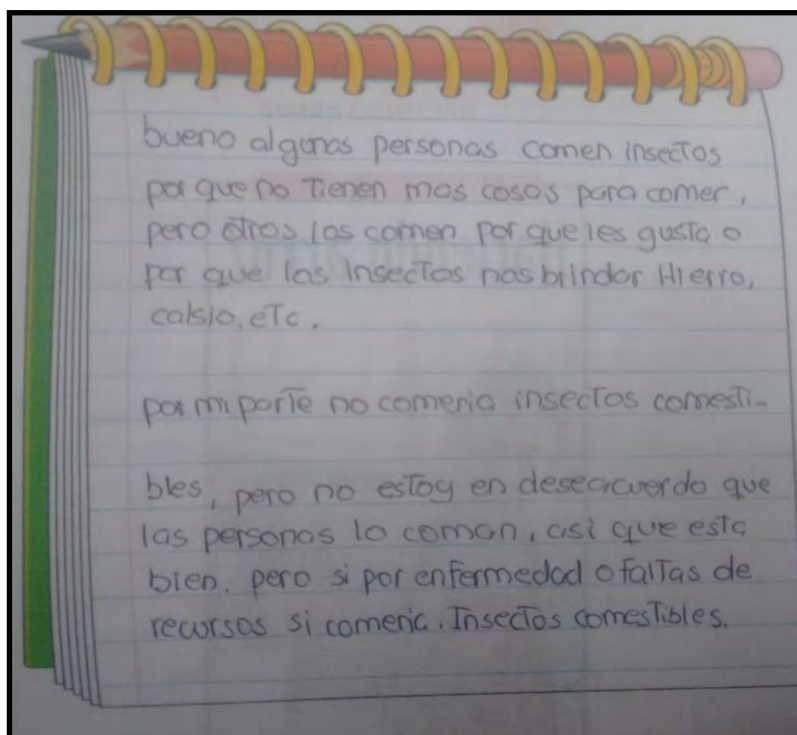 bueno algunas personas comen insectos
por que no Tienen mas cosas para comer,
pero otros los comen por que les gusta o
por que los insectos nos brindar Hierro,
calsio, etc.
por mi parte no comeria insectos comesti-
bles, pero no estoy en deseacuerdo que
las personas lo coman, asi que esta
bien. pero si por enfermedad o faltas de
recursos si comeria. Insectos comestibles.